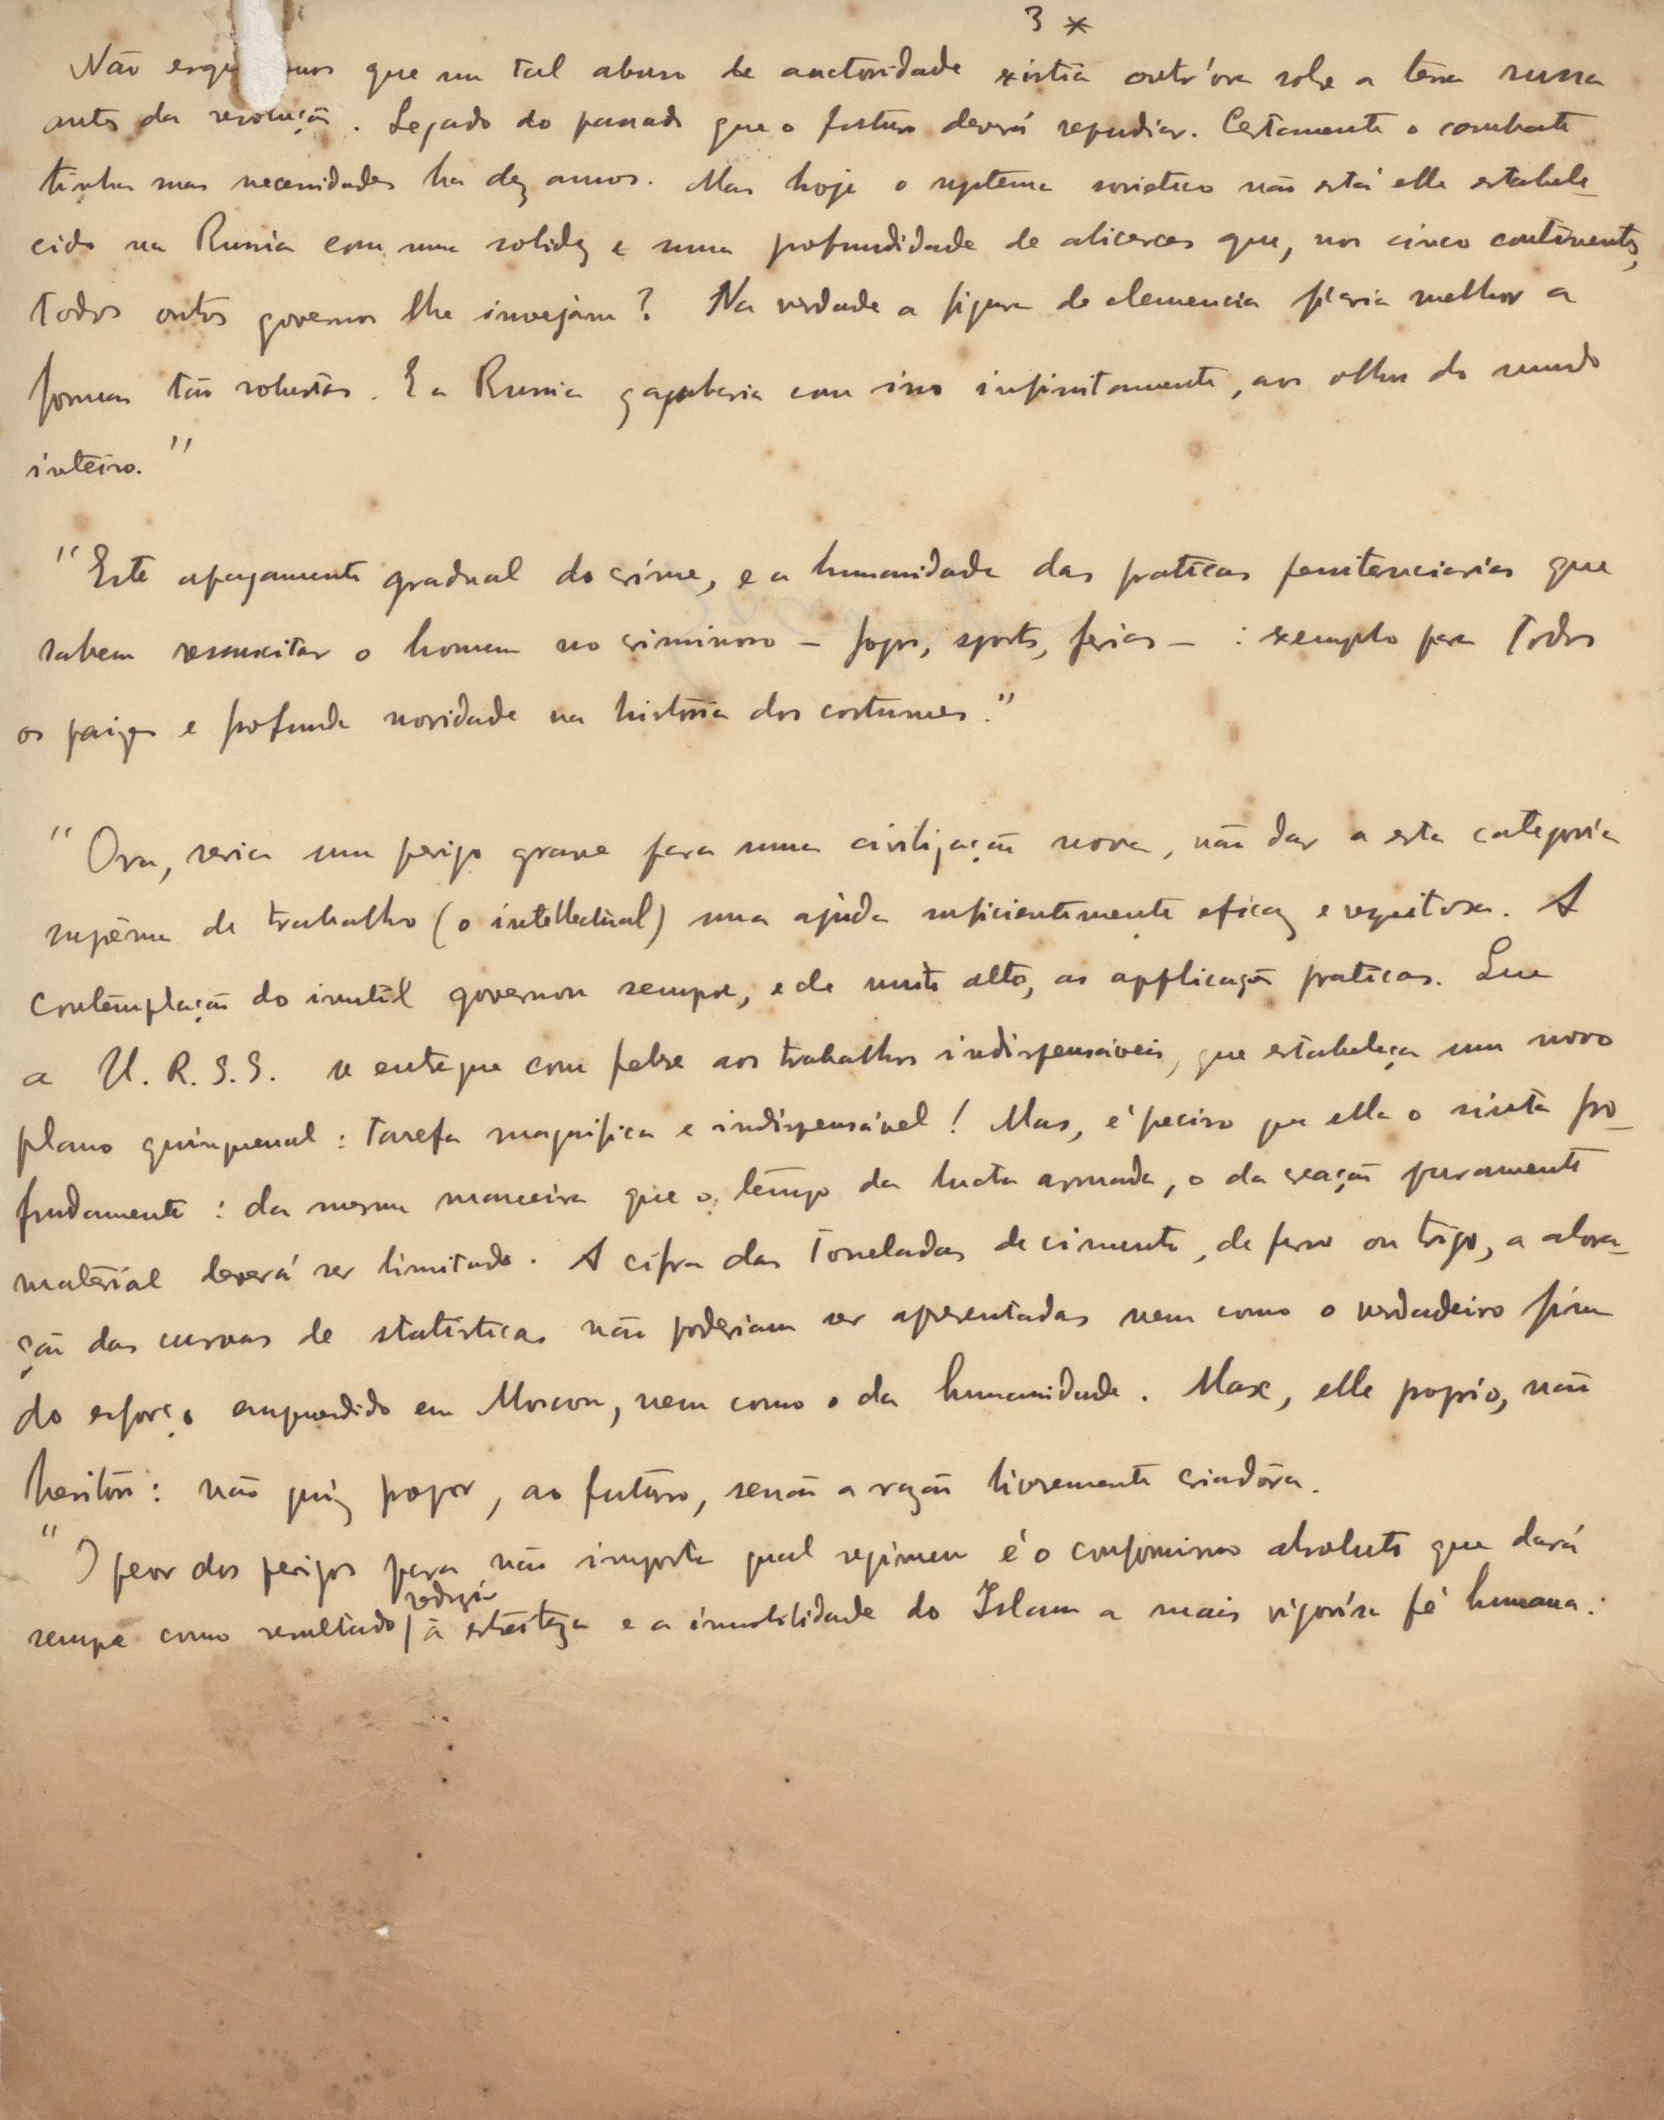 3 *
Não esqu mos que um tal abuso de auctoridade existia outr'ora sobre a terra russa
antes da revolução. Legado do passado que o futuro deverá repudiar. Certamente o combate
tinha suas necessidades ha dez annos. Mas hoje o systema sovietico não está elle estabele-
cido na Russia com uma solidez e uma profundidade de alicerces que, nos cinco continentes,
todos outros governos lhe invejam? Na verdade a figura de clemencia ficaria melhor a
formas tão robustas. E a Russia ganharia com isso infinitamente, aos olhos do mundo
inteiro."
"Este apagamento gradual do crime, e a humanidade das praticas penitenciarias que
sabem ressuscitar o homem no criminoso – jogos, sports, ferias – : exemplo para todos
os paizes e profunda novidade na historia dos costumes."
"Ora, seria um perigo grave para uma civilização nova, não dar a esta categoria
suprema de trabalho (o intellectual) uma ajuda suficientemente eficaz e respeitosa. A
contemplação do inutil governou sempre, e de muito alto, as applicações praticas. Que
a U. R. S. S. se entregue com febre aos trabalhos indispensáveis, que estabeleça um novo
plano quinquenal: tarefa magnifica e indispensável! Mas, é preciso que ella o sinta pro-
fundamente: da mesma maneira que o tempo da lucta armada, o da creação puramente
material deverá ser limitado. A cifra das toneladas de cimento, de ferro ou trigo, a
ção das curvas de statisticas não poderiam ser apresentadas nem como o verdadeiro fim
do esforço empreendido em Moscou, nem como o da humanidade. Marx, elle proprio, não
hesitou: não quiz propor, ao futuro, senão a razão livremente criadora.
"O peor dos perigos para não importa qual regimen é o conformismo absoluto que dará
sempre como resultado | reduzir à estreiteza e a imobilidade do Islam a mais vigorosa fé humana.